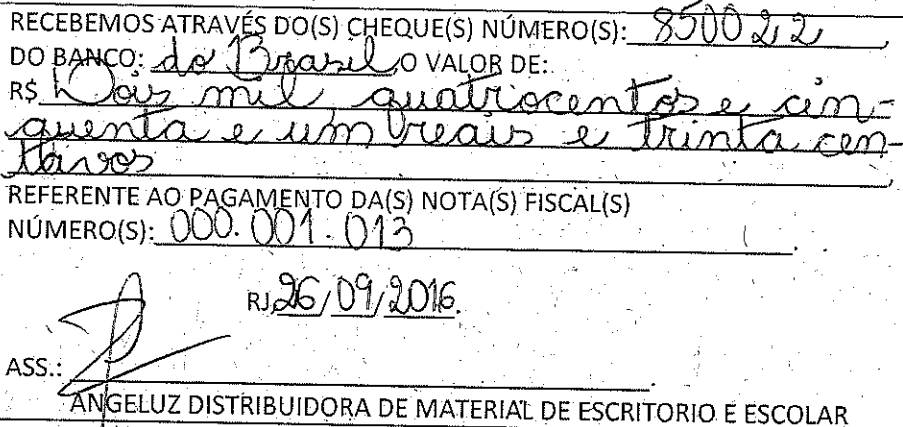 RECEBEMOS ATRAVÉS DO(S) CHEQUE(S) NÚMERO(S): 850022,
DO BANCO: do Brasil, O VALOR DE:
R$ Dois mil quatrocentos e cin-
quenta e um reais e trinta cen-
tavos,
REFERENTE AO PAGAMENTO DA(S) NOTA(S) FISCAL(S)
NÚMERO(S): 000.001.013.
RJ, 26/09/2016.
ASS.:
ANGELUZ DISTRIBUIDORA DE MATERIAL DE ESCRITORIO E ESCOLAR